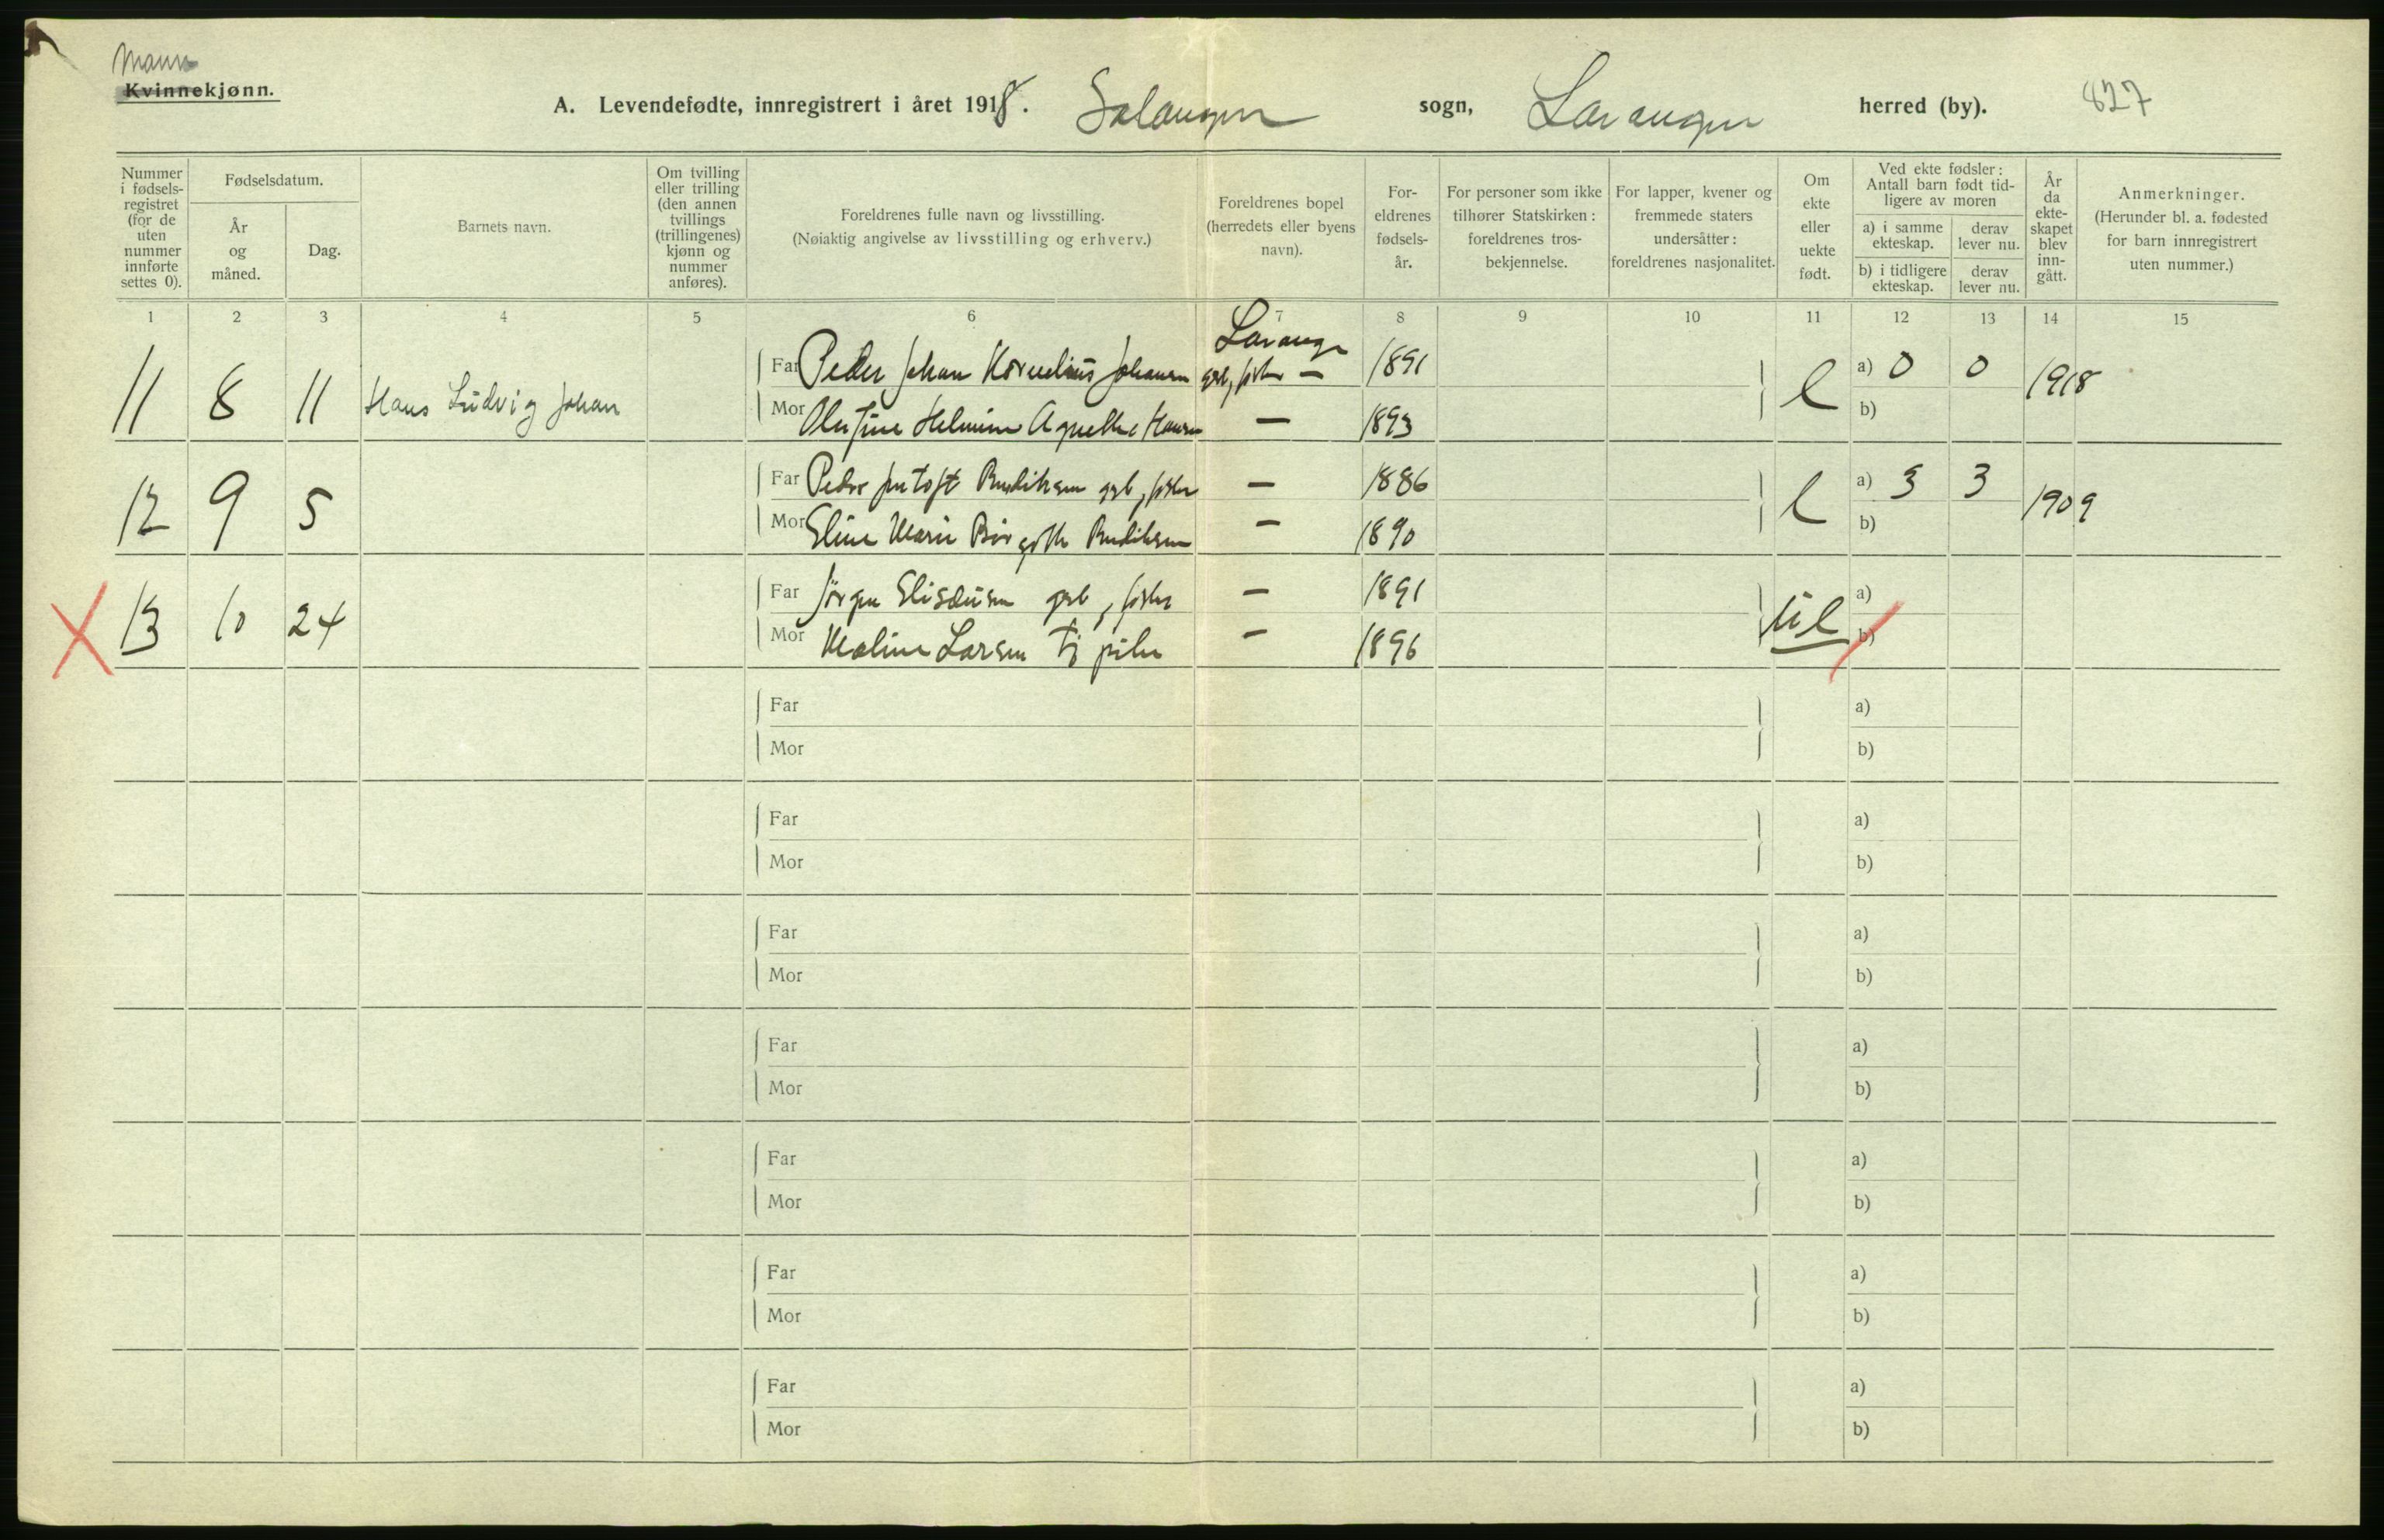 Mann
Kvinnekjønn.
A. Levendefødte, innregistrert i året 1918. Salangen sogn, Lavangen herred (by). 827
Nummer i fødsels-registret (for de uten nummer innførte settes 0).
Fødselsdatum.
År og måned.
Dag.
Barnets navn.
Om tvilling eller trilling (den annen tvillings (trillingenes) kjønn og nummer anføres).
Foreldrenes fulle navn og livsstilling.
(Nøiaktig angivelse av livsstilling og erhverv.)
Foreldrenes bopel (herredets eller byens navn).
For-eldrenes fødsels-år.
For personer som ikke tilhører Statskirken: foreldrenes tros-bekjennelse.
For lapper, kvener og fremmede staters undersåtter: foreldrenes nasjonalitet.
Om ekte eller uekte født.
Ved ekte fødsler: Antall barn født tid-ligere av moren
a) i samme ekteskap.
derav lever nu.
b) i tidligere ekteskap.
derav lever nu.
År da ekte-skapet blev inn-gått.
Anmerkninger.
(Herunder bl. a. fødested for barn innregistrert uten nummer.)
1 2 3 4 5 6 7 8 9 10 11 12 13 14 15
Lavange
11 8 11 Hans Ludvig Johan Far Peder Johan Kornelius Johansen grb, fisker — 1891 e a) 0 0 1918
Mor Olufine Helmine Hansen — 1893 b)
12 9 5 Far Peder Bendiksen grb, fisker — 1886 e a) 3 3 1909
Mor Eline Marie Bendiksen — 1890 b)
13 10 24 Far Jørgen Elisæusen grb, fisker — 1891 ue a)
Mor Maline Larsen Tj pike — 1896 b)
Far a)
Mor b)
Far a)
Mor b)
Far a)
Mor b)
Far a)
Mor b)
Far a)
Mor b)
Far a)
Mor b)
Far a)
Mor b)